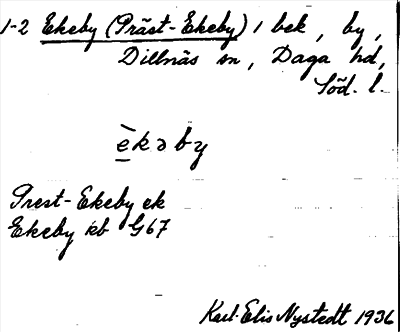 1-2 Ekeby (Präst-Ekeby) / bek, by,
Dillnäs sn, Daga hd,
Söd. l.
è̱kəby
Prest-Ekeby ek
Ekeby kb G67
Karl-Elis Nystedt 1936